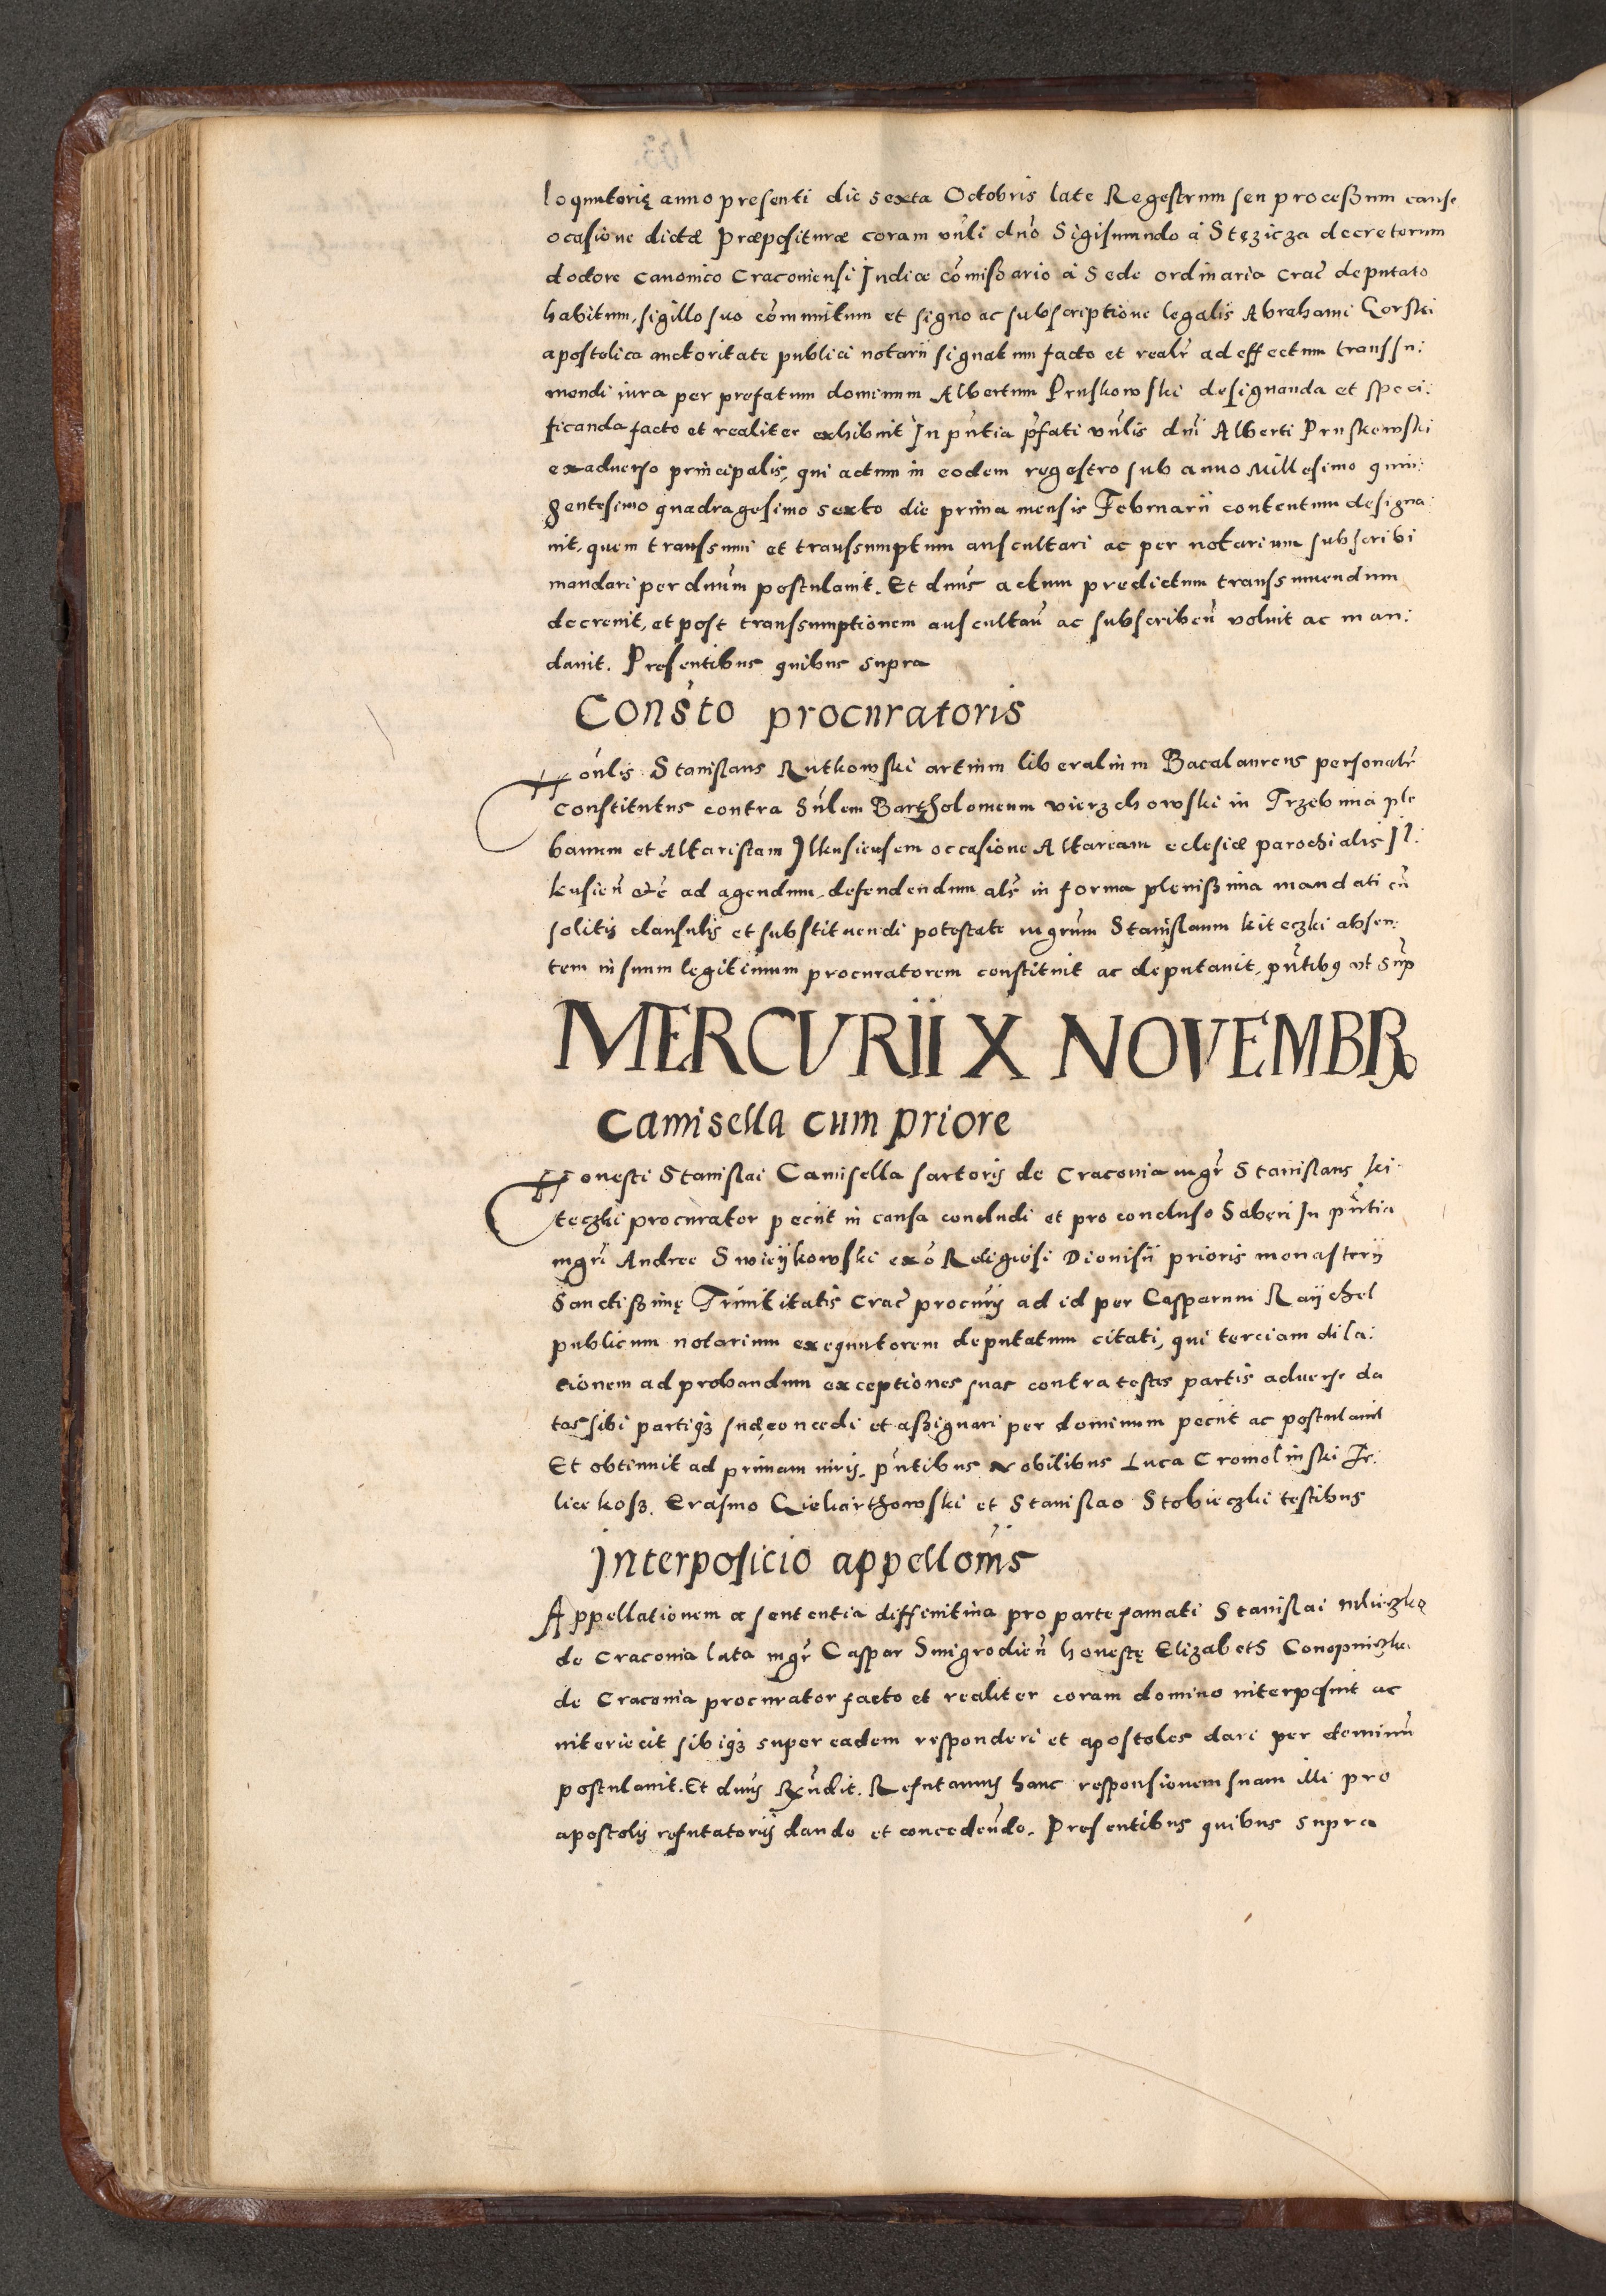 loquutorię anno presenti die sexta Octobris late Regestrum seu processum cause
ocasione dictæ Præposituræ coram vn̄li dn̄o Sigismundo á Stęzicza decretorum
doctore canonico Cracouiensi Judice cōmissario á Sede ordinaria Crac̄ deputato
habitum, sigillo suo cōmunitum et signo ac subscriptione legalis Abrahami Gorski
apostolica auctoritate publici notarii signatum facto et realr̄ ad effectum transsu:
mendi iura per prefatum dominum Albertum Pruskowski designanda et speci:
ficanda facto et realiter exhibuit In pn̄tia p̄fati vn̄lis dn̄i Alberti Pruskowski
exaduerso principalis, qui actum in eodem regestro sub anno Millesimo quin:
gentesimo quadragesimo sexto die prima mensis Februarii contentum designa:
uit, quem transsumi et transsumptum auscultari ac per notarium subscribi
mandari per dnūm postulauit. Et dnūs actum predictum transsumendum
decreuit, et post transsumptionem auscultan̄ ac subscriben̄ voluit ac man:
dauit. Presentibus quibus supra
Consto procuratoris
Honlis Stanislaus Rutkowski artium liberalium Bacalaureus personalr̄
constitutus contra Hn̄lem Bartholomeum vierzchowski in Trzebinia ple
banum et Altaristam Jlkusiensem occasione Altaream eclesiæ parochialis Jl:
kusien̄ etc̄ ad agendum, defendendum als̄ in forma plenissima mandati cū
solitis clausulis et substituendi potestate mgrūm Stanislaum kiteczki absen:
tem in suum legitimum procuratorem constituit ac deputauit, pn̄tibus vt sup̄
MERCVRII X NOVEMBR
Camisella cum priore
Honesti Stanislai Camisella sartoris de Cracouia mgr̄ Stanislaus ki:
teczki procurator peciit in causa concludi et pro concluso haberi In pn̄tia
mgrī Andree Swieÿkowski exo Religiosi Dionisii prioris monasterÿ
Sanctissimę Trinititatis Crac̄ procurīs ad id per Casparum Raÿchel
publicum notarium exequutorem deputatum citati, qui terciam dila:
cionem ad probandum exceptiones suas contra testes partis aduerse da
tas sibi partiqȝ suæ concedi et assignari per dominum peciit ac postulauit
Et obtinuit ad primam iuris, pn̄tibus nobilibus Luca Cromolinski
Erasmo et Stanislao Stobieczki testibus
Interposicio appellonīs
Appellationem a sententia diffinitiua pro parte famati Stanislai
de Cracouia lata mgr̄ Caspar Smigrodien̄ honestę Elizabeth
de Cracouia procurator facto et realiter coram domino interposuit ac
interiecit sibiqȝ super eadem responderi et apostolos dari per dominū
postulauit. Et dnūs Rn̄dit. Refutamus hanc responsionem suam illi pro
apostolis refutatoriis dando et concedendo. Presentibus quibus supra